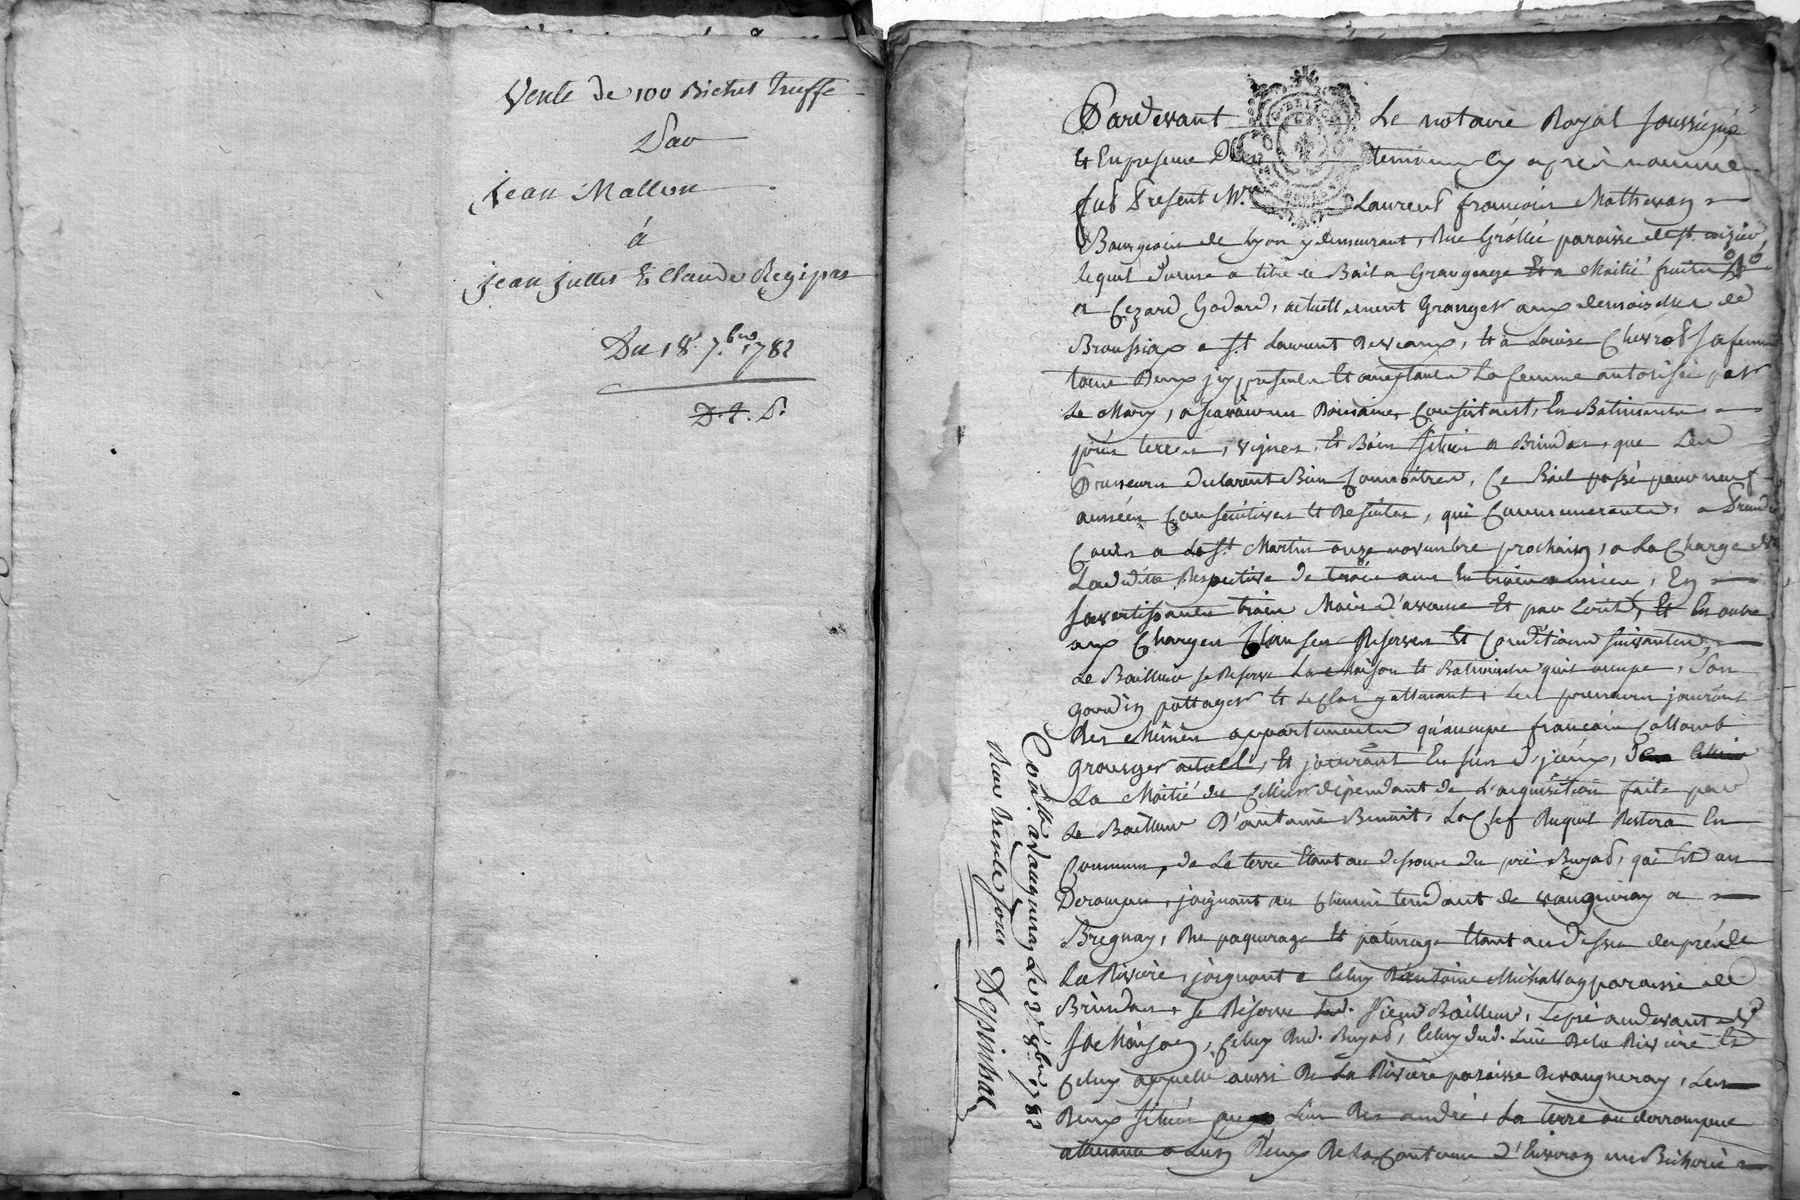 Vente de 100 Bichet truffe
Par
jean Mallon
á
jean jullet & Claude Regipas
Du 18e 7.bre 1782
Pardevant Le notaire Royal soussigné
Et En presence Des temoins Cy apres nommés
fut Present Mr. Laurent françois Mathevon
Bourgeois de Lyon y demeurant, Rue Grôllée paroisse de st. nizier
lequel Donne a titre de Bail a Grangeage Et a Moitié fruits
a Cezard Godard, actuellement Granger aux demoiselles de
Broussiax a st. Laurent Devaux, Et a Louise Chevrot sa femme
tous Deux jcy presents Et acceptants La femme autorisée par
Le Mary, a scavoir un Domaine, Consistant, En Batiments
près terres, vignes, Et Bois situés a Brindas, que Les
Preneurs declarent Bien Connoitres, Ce Bail passé pour neuf
années Consécutives Et Resultes, qui Commenceront, a Prendre
Cours a La st. Martin onze novembre prochain, a La Charge
Laditte Respective de trois ans En trois années, En
s'avertissants trois Mois d'avance Et par Ecrit, Et En outre
aux Charges Clauses Reserves Et Conditions suivantes,
Le Bailleur se Reserve La Maison Et Batiments qu'il occupe, Son
jardin pottager Et Le Clos y attenant, Les preneurs jouiront
Des Mêmes appartements qu'occupe françois Collomb
granger actuel, Et jouiront En sus d'jceux,
La Moitié du Cellier dépendant de L'acquisition faite par
Le Bailleur D'antoine Benoit, La Clef Duquel Restera En
Commun, de La terre Etant au dessous du pré Buyat, qui Est un
Derompu, joignant au Chemin tendant de vaugneray a
Bregnay, Du paquerage Et paturage Etant au Dessus du pré de
La Riviere, joignant a Celuy D'antoine Michallon paroisse de
Brindas, se Réserve Led. Sieur Bailleur, Le pré au devant de
sa Maison, Celuy Dud. Buyat, Celuy dud. Lieu De La Riviere Et
Celuy appellé aussi De La Riviere paroisse De vaugneray, Les
Deux situés Lieu Des andré, La terre ou derrompue
attenant a Luy Deux De La Contenue D'Environ une Bicherée
Con.lle a vaugneray Le 3e 8.bre 1782
Reçu trente sous Depinhac